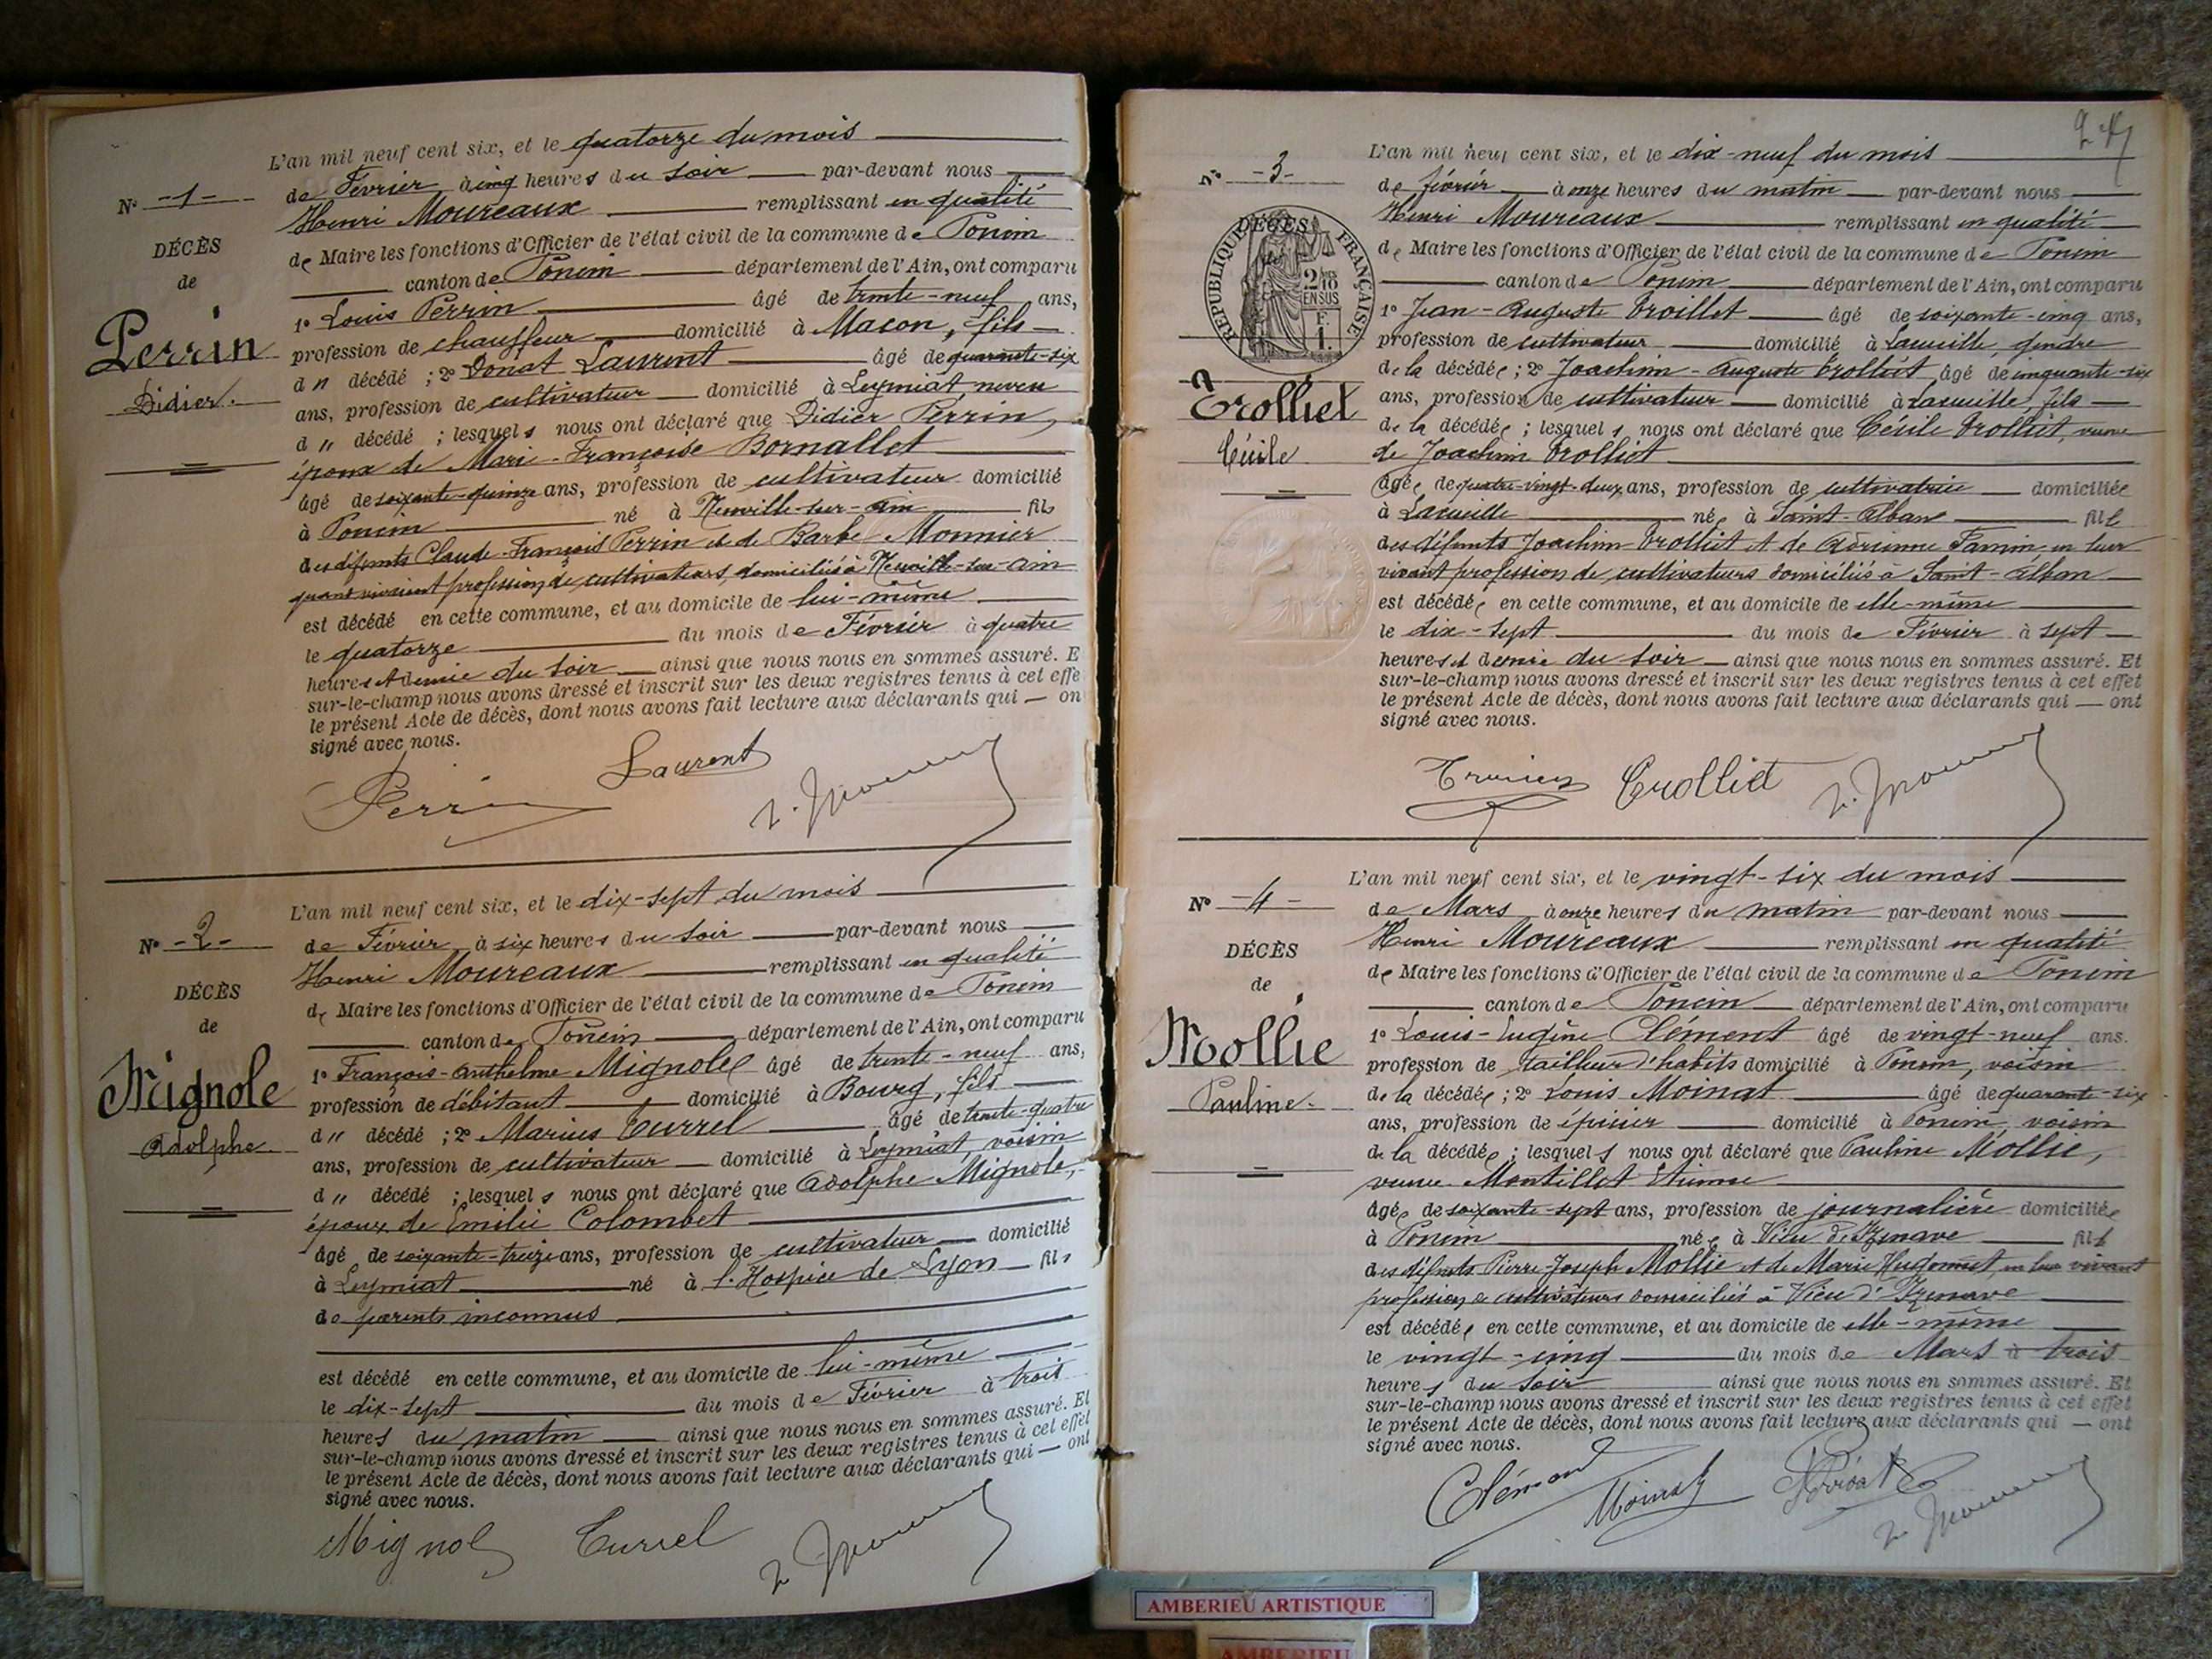 L'an mil neuf cent six, et le quatorze du mois
N° -1-
de Février à cinq heures du soir par-devant nous
Henri Moureaux remplissant en qualité
DÉCÈS
de Maire les fonctions d'Officier de l'état civil de la commune de Poncin
de
canton de Poncin département de l'Ain, ont comparu
Perrin
1° Louis Perrin âgé de trente-neuf ans,
profession de chauffeur domicilié à Macon, fils
Didier.
d " décédé ; 2° Donat Laurent âgé de quarante-six
ans, profession de cultivateur domicilié à Leymiat, neveu
d " décédé ; lesquels nous ont déclaré que Didier Perrin,
époux de Marie-Françoise Bornallet
âgé de soixante-quinze ans, profession de cultivateur domicilié
à Poncin né à Neuville-sur-Ain fils
des défunts Claude-François Perrin et de Barbe Monnier
quand vivaient profession de cultivateurs domiciliés à Neuville-sur-Ain
est décédé en cette commune, et au domicile de lui-même
le quatorze du mois de Février à quatre
heures et demie du soir ainsi que nous nous en sommes assuré. E
sur-le-champ nous avons dressé et inscrit sur les deux registres tenus à cet effe
le présent Acte de décès, dont nous avons fait lecture aux déclarants qui — on
signé avec nous.
Perrin Laurent
L'an mil neuf cent six, et le dix-sept du mois
N° -2-
de Février à six heures du soir par-devant nous
Henri Moureaux remplissant en qualité
DÉCÈS
de Maire les fonctions d'Officier de l'état civil de la commune de Poncin
de
canton de Poncin département de l'Ain, ont comparu
Mignole
1° François-Anthelme Mignole âgé de trente-neuf ans,
profession de débitant domicilié à Bourg, fils
Adolphe
d " décédé ; 2° Marius Curree âgé de trente-quatre
ans, profession de cultivateur domicilié à Leymiat, voisin
d " décédé ; lesquels nous ont déclaré que Adolphe Mignole,
époux de Emilie Colombet
âgé de soixante-treize ans, profession de cultivateur domicilié
à Leymiat né à l'Hospice de Lyon fils
de parents inconnus
est décédé en cette commune, et au domicile de lui-même
le dix-sept du mois de Février à trois
heures du matin ainsi que nous nous en sommes assuré. Et
sur-le-champ nous avons dressé et inscrit sur les deux registres tenus à cet effet
le présent Acte de décès, dont nous avons fait lecture aux déclarants qui — ont
signé avec nous.
Mignole
L'an mil neuf cent six, et le dix-neuf du mois
N° -3-
de février à onze heures du matin par-devant nous
Henri Moureaux remplissant en qualité
DÉCÈS
RÉPUBLIQUE FRANÇAISE
2/10 EN SUS
F. 1.
de Maire les fonctions d'Officier de l'état civil de la commune de Poncin
canton de Poncin département de l'Ain, ont comparu
1° Jean-Auguste âgé de soixante-cinq ans,
profession de cultivateur domicilié à Lacueille, gendre
Trolliet
de la décédée ; 2° Joachim-Auguste Trolliet, âgé de cinquante-six
ans, profession de cultivateur domicilié à Lacueille, fils
Cécile
de la décédée ; lesquels nous ont déclaré que Cécile Trolliet, veuve
de Joachim Trolliet
âgée de quatre-vingt-deux ans, profession de cultivatrice domiciliée
à Lacueille née à Saint-Alban fille
des défunts Joachim Trolliet et de Adrienne en leur
vivant profession de cultivateurs domiciliés à Saint-Alban
est décédée en cette commune, et au domicile de elle-même
le dix-sept du mois de Février à sept
heures et demie du soir ainsi que nous nous en sommes assuré. Et
sur-le-champ nous avons dressé et inscrit sur les deux registres tenus à cet effet
le présent Acte de décès, dont nous avons fait lecture aux déclarants qui — ont
signé avec nous.
Trolliet
L'an mil neuf cent six, et le vingt-six du mois
N° -4-
de Mars à onze heures du matin par-devant nous
Henri Moureaux remplissant en qualité
DÉCÈS
de Maire les fonctions d'Officier de l'état civil de la commune de Poncin
de
canton de Poncin département de l'Ain, ont comparu
Mollie
1° Louis-Eugène Clément âgé de vingt-neuf ans.
profession de tailleur d'habits domicilié à Poncin, voisin
Pauline.
de la décédée ; 2° Louis Moinat âgé de quarante-six
ans, profession de épicier domicilié à Poncin, voisin
de la décédée ; lesquels nous ont déclaré que Pauline Mollie,
veuve Montillet Etienne
âgée de soixante-sept ans, profession de journalière domiciliée
à Poncin née à Vieu d'Izenave fille
des défunts Pierre-Joseph Mollie et de Marie Hugonnet, en leur vivant
profession de cultivateurs domiciliés à Vieu d'Izenave
est décédée en cette commune, et au domicile de elle-même
le vingt-cinq du mois de Mars à trois
heures du soir ainsi que nous nous en sommes assuré. Et
sur-le-champ nous avons dressé et inscrit sur les deux registres tenus à cet effet
le présent Acte de décès, dont nous avons fait lecture aux déclarants qui — ont
signé avec nous.
Clément Moinat
AMBERIEU ARTISTIQUE
AMBERIEU